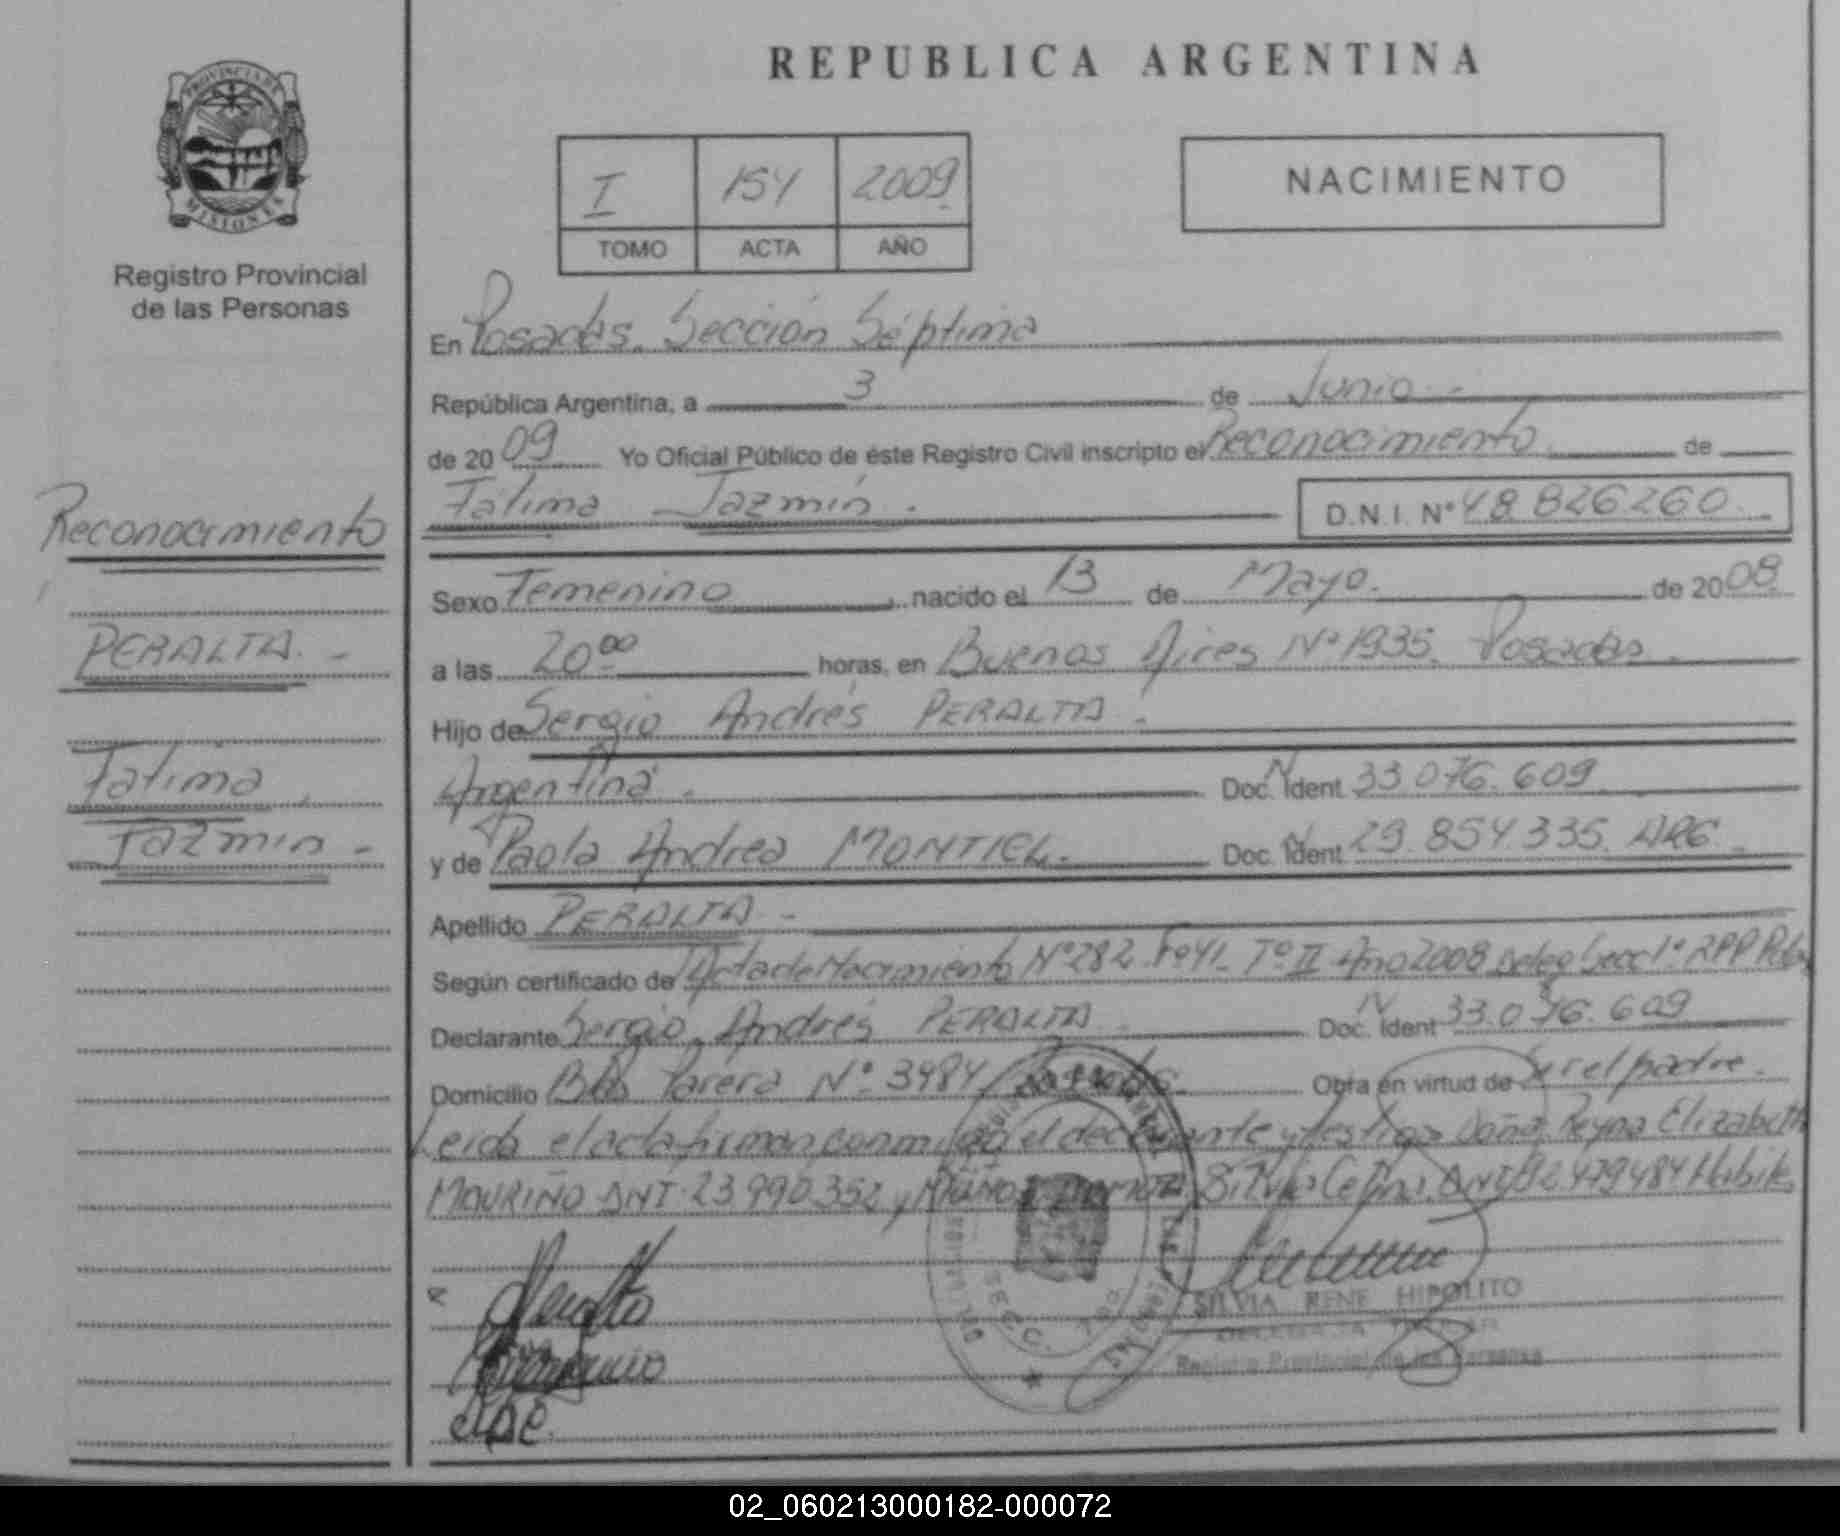 PROVINCIA DE
MISIONES
Registro Provincial
de las Personas
Reconocimiento
PERALTA.-
Fátima
Jazmín.-
REPUBLICA ARGENTINA
I 154 2009
TOMO ACTA AÑO
NACIMIENTO
En Posadas. Sección Séptima
República Argentina, a 3 de Junio.-
de 20 09 Yo Oficial Público de éste Registro Civil inscripto el Reconocimiento de
Fátima Jazmín. D.N.I. N° 48.826260.
Sexo Femenino, nacido el 13 de Mayo. de 20 08.
a las 20 00 horas, en Buenos Aires N° 1935. Posadas.
Hijo de Sergio Andrés PERALTA.
Argentina. Doc. Ident 33.076.609
y de Paola Andrea MONTIEL.- Doc. Ident 29.854.335. ARG.
Apellido PERALTA.-
Según certificado de Acta de Nacimiento N° 282 F° 41. T° II Año 2008 Deleg Secc 1° RPP
Declarante Sergio Andrés PERALTA Doc. Ident 33.076.609
Domicilio Parera N° 3484 Obra en virtud de Ser el padre.
Leída el acta firman conmigo el declarante y testigos Doña Reyna Elizabeth
MOURIÑO DNI 23.990.352 y DNI 92.479484 Hábiles
Peralta
SILVIA RENE HIPOLITO
DELEGADA TITULAR
Registro Provincial de las Personas
02_060213000182-000072